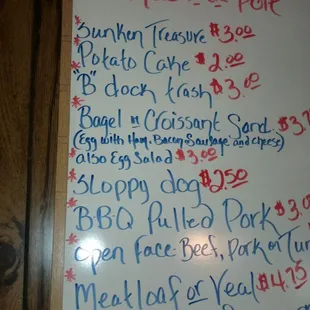 Pole
*Sunken Treasure $3.00
*Potato Cake $2.00
*"B" dock trash $3.00
*Bagel or Croissant Sand. $3.
(Egg with Ham, Bacon, Sausage and cheese)
*also Egg Salad $3.00
*Sloppy dog $2.50
*BBQ Pulled Pork $3.0
*Open Face: Beef, Pork or Tur
*Meatloaf or Veal $4.75